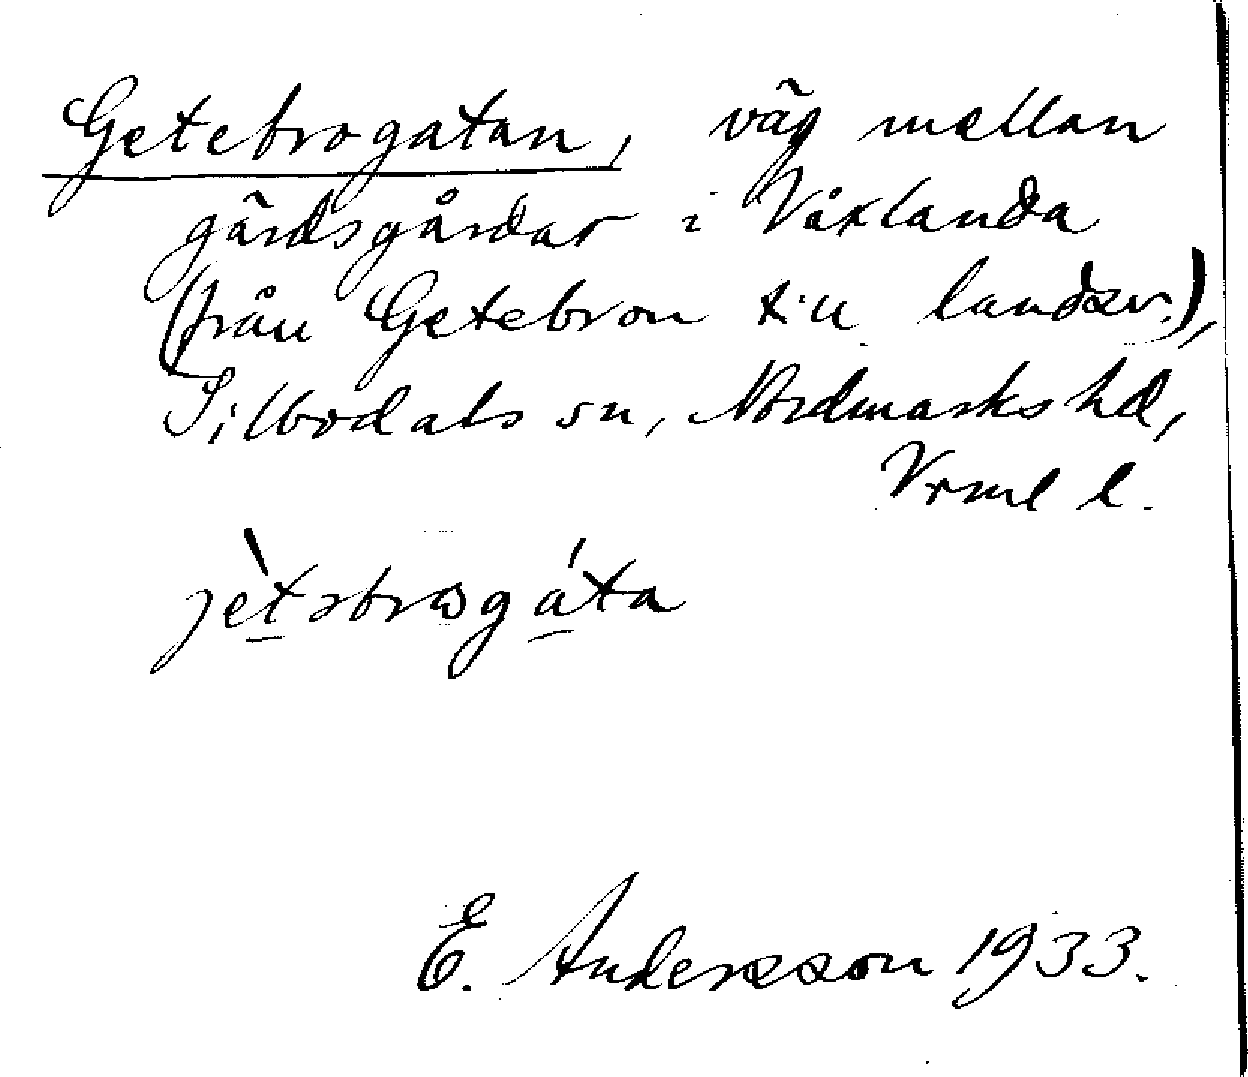 Getebrogatan, väg mellan
gärdsgårdar i Våxlanda
(från Getebron till landsv.),
Silbodals sn, Nordmarks hd,
Vrml l.
E. Andersson 1933.